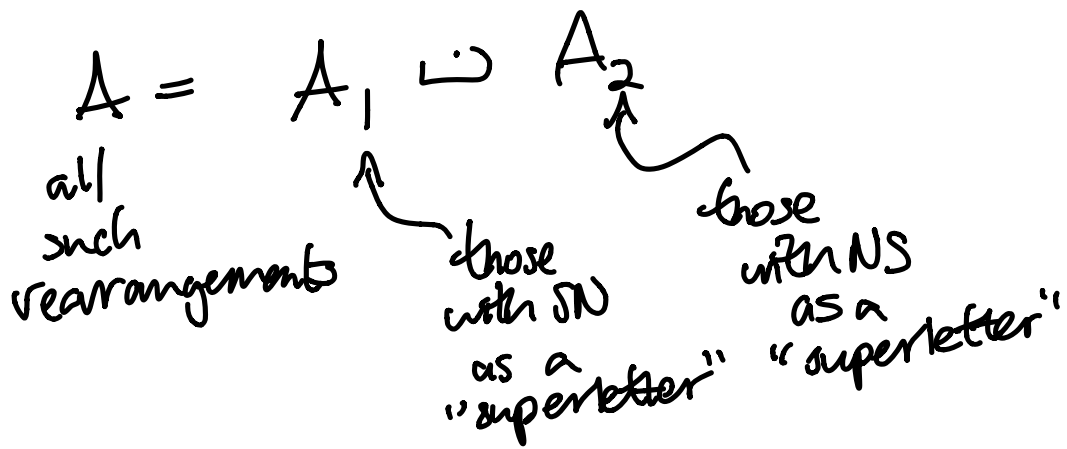 A = A₁ ⊍ A₂
all
such
rearrangements
those
with SN
as a
"superletter"
those
with NS
as a
"superletter"